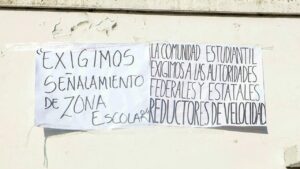 "EXIGIMOS
SEÑALAMIENTO
DE ZONA
ESCOLAR"
LA COMUNIDAD ESTUDIANTIL
EXIGIMOS A LAS AUTORIDADES
FEDERALES Y ESTATALES
REDUCTORES DE VELOCIDAD